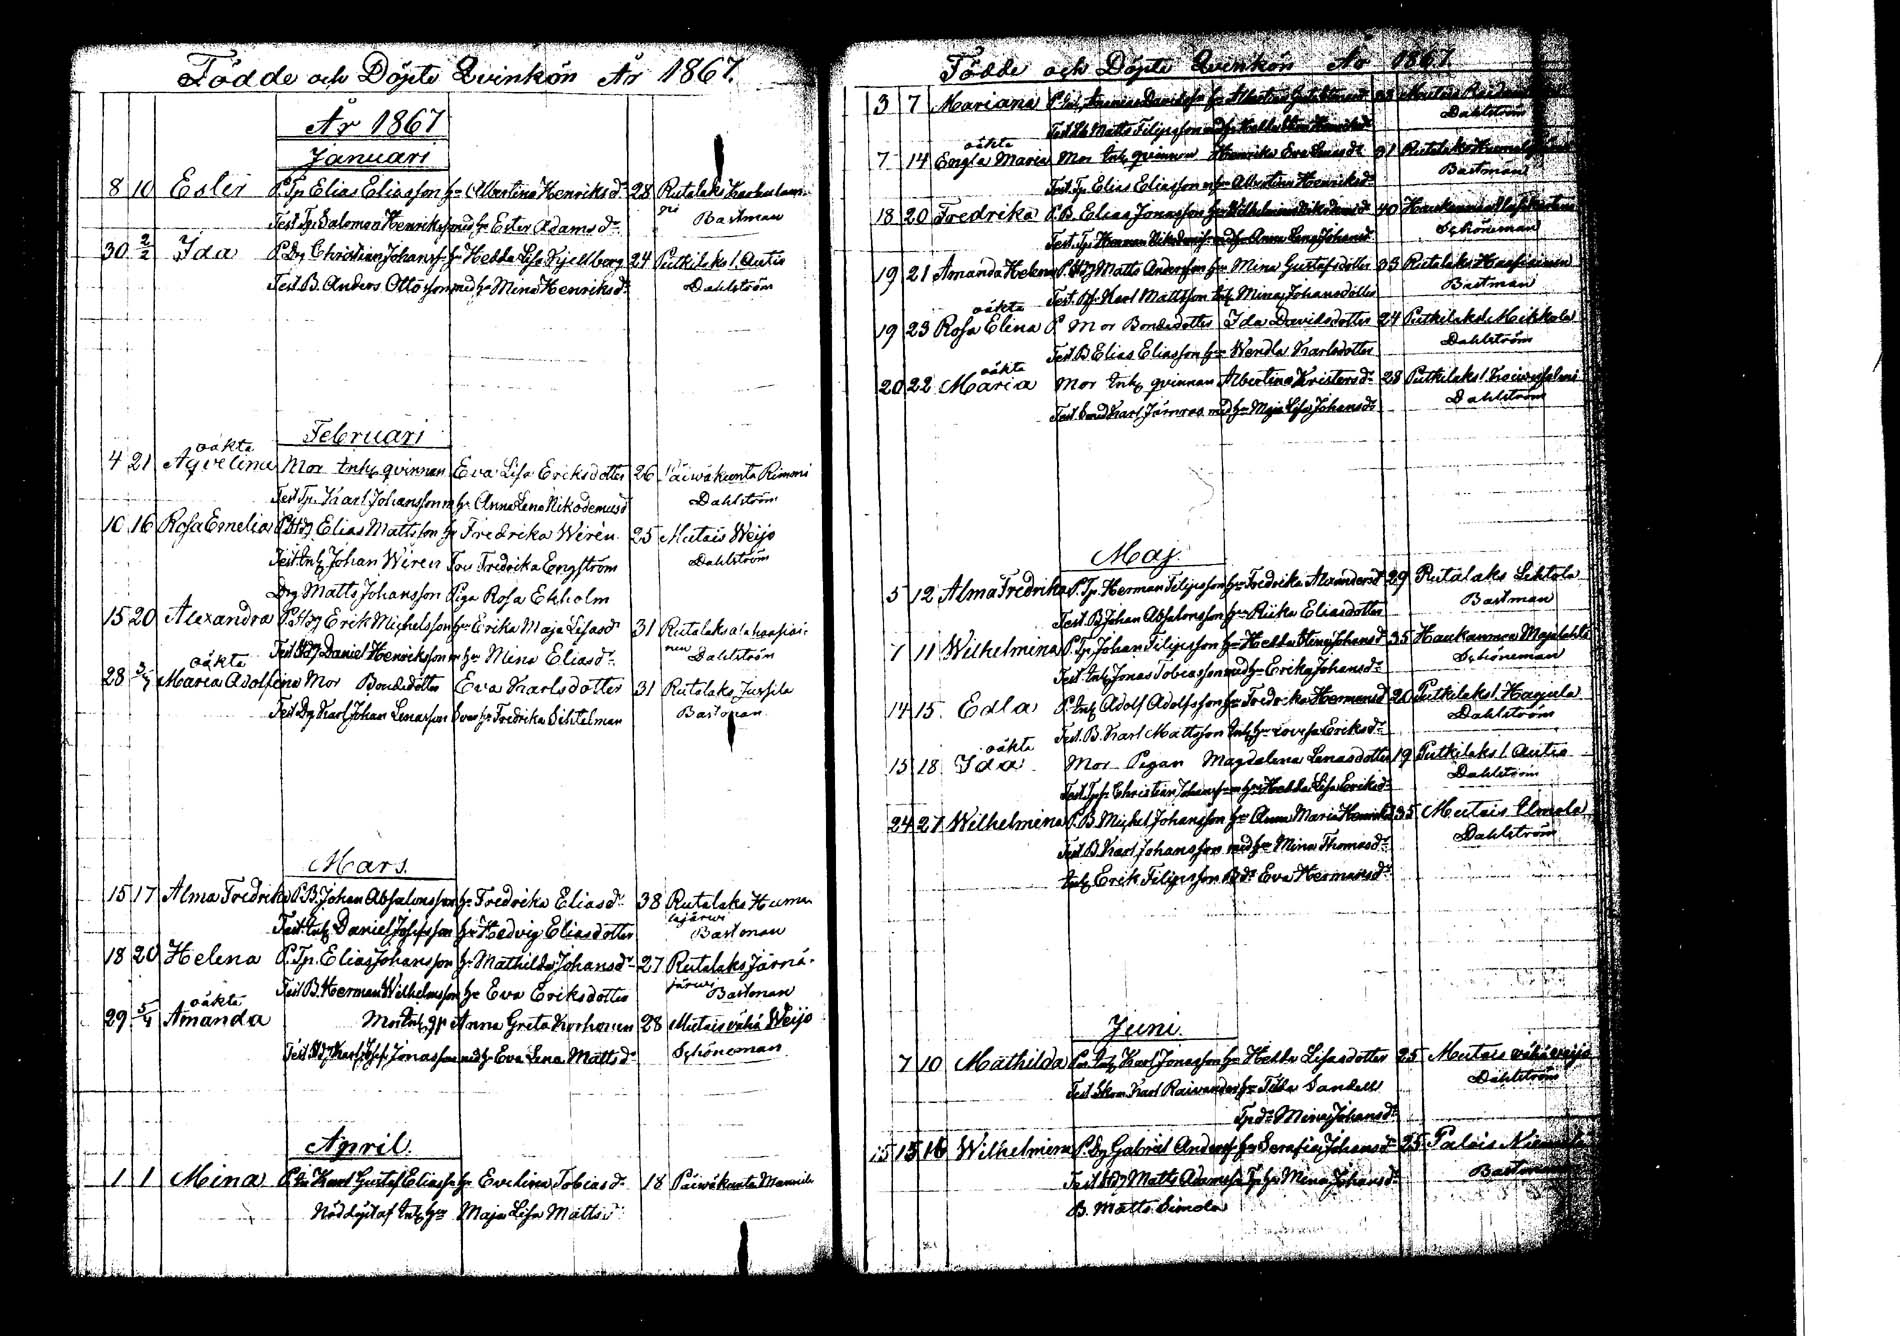 Födde och Döpte Qvinkön År 1867.
År 1867
Januari
8 10 Ester P. Tp. Elias Eliasson hr Albertina Henriksdr 28 Rutalaks
Test. Tp. Salomon Henriksson md hr Ester Adamsdr Bastman
30 2/2 Ida P. Drg Christian Johanss. hr Hedda Lisa Kjellberg 24 Putkilaks l. Autio
Test. B. Anders Ottosson med hr Mina Henriksdr Dahlström
Februari
oäkta
4 21 Aqvelina Mor Inh. qvinnan Eva Lisa Eriksdotter 26 Päiwäkunta Rimmi
Test. Tp. Karl Johansson m hr Anna Lena Nikodemusd Dahlström
10 16 Rosa Emelia P. Hdg Elias Mattsson hr Fredrika Wirén 25 Mutais Weijo
Test. Inh. Johan Wiren Fru Fredrika Engström Dahlström
Drg Matts Johansson Piga Rosa Ekholm
15 20 Alexandra P. Hdg Erik Michelsson hr Erika Maja Lisasdr 31 Rutalaks
Test. Hdg Daniel Henriksson m hr Mina Eliasdr Dahlström
oäkta
28 3/7 Maria Adolfina Mor Bondedotter Eva Karlsdotter 31 Rutalaks Jussila
Test. Drg Karl Johan Lenasson Svär hr Fredrika Sihtelman Bastman
Mars.
15 17 Alma Fredrika P. B. Johan Absalonsson hr Fredrika Eliasdr 38 Rutalaks Huma-
lajärwi
Test. Inh. Daniel Josefsson hr Hedvig Eliasdotter Bastman
18 20 Helena P. Tp. Elias Johansson hr Mathilda Johansdr 27 Rutalaks Järnä-
järwi
Test. B. Herman Wilhelmsson hr Eva Eriksdotter Bastman
oäkta
29 5/4 Amanda Mor Inh. qv Anna Greta Korhonen 28 Mutais vähä Weijo
Test. Hdg Karl Josef Jonasson med hr Eva Lena Mattsdr Schöneman
April.
1 1 Mina P. Karl Gustaf Eliasson hr Evelina Tobiasdr 18 Päiwäkunta
Nöddöpt af Inh. hr Maja Lisa Mattsdr
Födde och Döpte Qvinkön År 1867.
3 7 Mariana P. Inh. Davidsson hr Albertina 23 Mutais
Dahlström
Test. Matts Filipsson med hr Hedda Henriksdr
oäkta
7 14 Engla Maria Mor Inh. qvinnan Henrika Eva Lenasdr 31 Rutalaks
Bastman
Test. Tp. Elias Eliasson m hr Albertina Henriksdr
18 20 Fredrika P. B. Elias Jonasson hr Wilhelmina Nikodemusd 40 Haukanmaa
Schöneman
Test. Tp. Herman med hr Anna Lena Johansd
19 21 Amanda Helena P. Hdg Matts Andersson hr Mina Gustafsdotter 33 Rutalaks Haapasenen
Bastman
Test. Karl Mattsson Inh. Mina Johansdotter
oäkta
19 23 Rosa Elina P. Mor Bondedotter Ida Davidsdotter 24 Putkilaks Mikkola
Test. B. Elias Eliasson hr Wendla Karlsdotter Dahlström
oäkta
20 22 Maria Mor Inh. qvinnan Albertina Kristersdr 28 Putkilaks l.
Dahlström
Test. Karl med hr Maja Lisa Johansdr
Maj.
5 12 Alma Fredrika P. Tp. Herman Filipsson hr Fredrika Alexandersd 29 Rutalaks Lehtola
Test. B. Johan Absalonsson hr Riika Eliasdotter Bastman
7 11 Wilhelmina P. Tp. Johan Filipsson hr Hedda Stina Johansd 35 Haukanmaa Majalahti
Test. Inh. Jonas Tobiasson med hr Erika Johansdr Schöneman
14 15 Edla P. Inh. Adolf Adolfsson hr Fredrika Hermansd 20 Putkilaks l. Harjula
Test. B. Karl Mattsson Inh. hr Lovisa Eriksdr Dahlström
oäkta
15 18 Ida Mor Pigan Magdalena Lenasdotter 19 Putkilaks l. Autio
Test. Christian Johansson m hr Hedda Lisa Eriksdr Dahlström
24 27 Wilhelmina P. B. Michel Johansson hr Anna Maria Henriksd 35 Mutais Elmola
Test. B. Karl Johansson med hr Mina Thomasdr Dahlström
Inh. Erik Filipsson B. dr Eva Hermansdr
Juni.
7 10 Mathilda P. Inh. Karl Jonasson hr Hedda Lisasdotter 25 Mutais vähä weijo
Test. Skom. Karl Raivander hr Tilda Sandell Dahlström
Tp. dr Mina Johansdr
15 15 16 Wilhelmina P. Drg Gabriel Anderss. hr Serafia Johansdr 25 Palais
Test. Hdg Matts Adamsson Tp. hr Mina Johansdr Bastman
B. Matts Simola